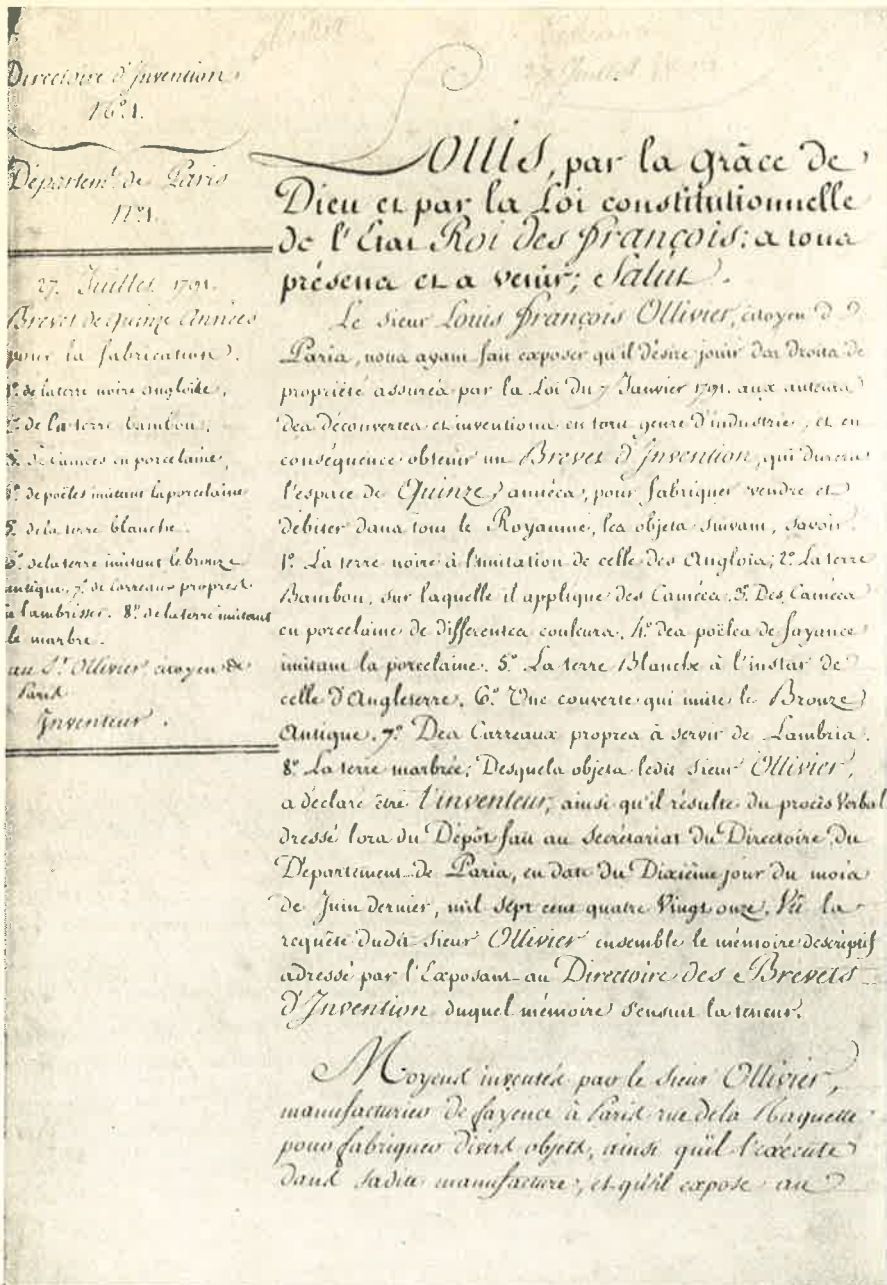 Directoire d'Invention
N.º 1.
Départem.t de Paris
N.º 1.
27. Juillet 1791.
Brevet de quinze Années
pour la fabrication
1.º de la terre noire angloise,
2.º de la terre bambou,
3.º de Camées en porcelaine,
4.º de poëles imitant la porcelaine
5.º de la terre blanche
6.º de la terre imitant le bronze
antique. 7.º de Carreaux propres
à lambrisser. 8.º de la terre imitant
le marbre.
au S.r Ollivier citoyen de
Paris
Inventeur.
LOUIS, par la Grâce de
Dieu et par la Loi constitutionnelle
de l'Etat Roi des François: a tous
présens et a venir; Salut.
Le Sieur Louis François Ollivier, citoyen de
Paris, nous ayant fait exposer qu'il désire jouir des droits de
propriété assurés par la Loi du 7 Janvier 1791. aux auteurs
des découvertes et inventions en tout genre d'industrie, et en
conséquence obtenir un Brevet d'Invention, qui durera
l'espace de Quinze années, pour fabriquer vendre et
débiter dans tout le Royaume, les objets suivant, savoir
1.º La terre noire à l'imitation de celle des Anglois; 2.º La terre
Bambou, sur laquelle il applique des Camées. 3.º Des Camées
en porcelaine de differentes couleurs. 4.º des poëles de fayance
imitant la porcelaine. 5.º La terre Blanche à l'instar de
celle d'Angleterre. 6.º Une couverte qui imite le Bronze
Antique. 7.º Des Carreaux propres à servir de Lambris.
8.º La terre marbrée; Desquels objets ledit Sieur Ollivier,
a déclaré être l'inventeur, ainsi qu'il résulte du procès Verbal
dressé lors du Dépôt fait au Secrétariat du Directoire du
Département de Paris, en date du Dixième jour du mois
de Juin dernier, mil sept cent quatre Vingt onze. Vû la
requête dudit Sieur Ollivier ensemble le mémoire descriptif
adressé par l'Exposant au Directoire des Brevets
d'Invention duquel mémoire s'ensuit la teneur.
Moyens inventés par le Sieur Ollivier,
manufacturier de fayence à Paris rue de la Roquette
pour fabriquer divers objets, ainsi qu'il l'exécute
dans sadite manufacture, et qu'il expose au